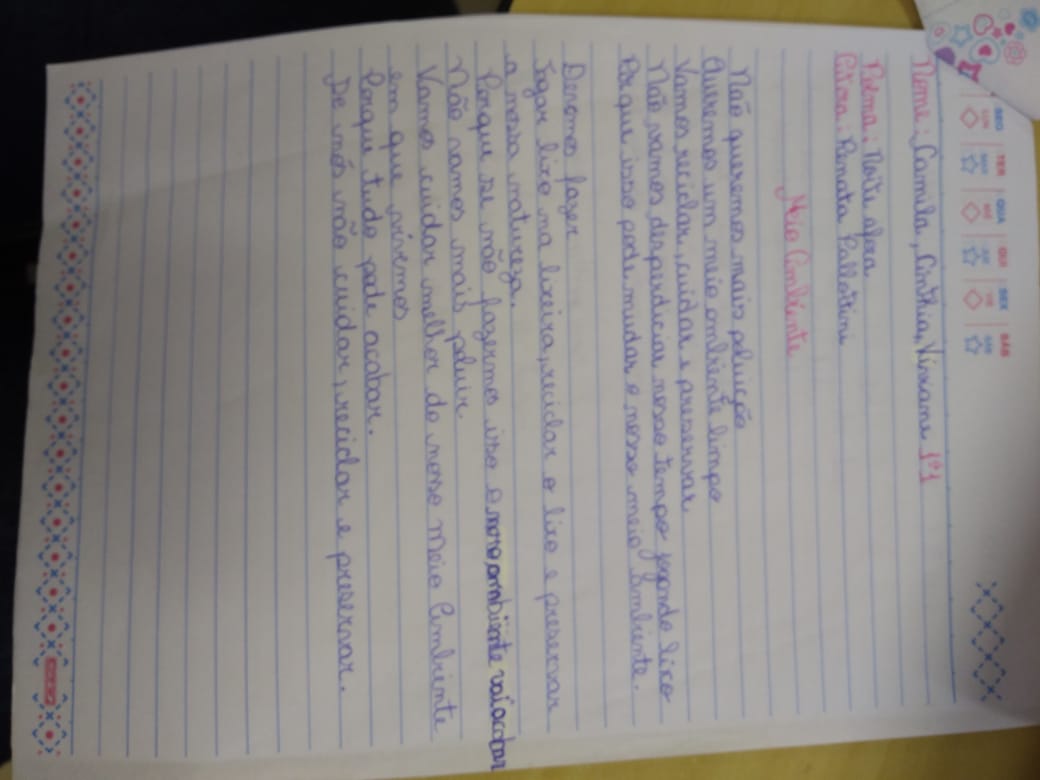 SEG TER QUA QUI SEX SÁB
Nome: Camila, Cinthia, Vivxame 1º1
Poema: Noite afora
Autora: Renata Pallottini
Meio Ambiente
Não queremos mais poluição
Queremos um meio ambiente limpo
Vamos reciclar, cuidar e preservar
Não vamos disperdiciar nosso tempo jogando lixo
Por que isso pode mudar o nosso meio Ambiente.
Devemos fazer
Jogar lixo na lixeira, reciclar o lixo e preservar
a nossa natureza.
Porque se não fazermos isso o nosso ambiente vai acabar
Não vamos mais poluir
Vamos cuidar melhor do nosso Meio Ambiente
em que vivemos
Porque tudo pode acabar.
De nós não cuidar, reciclar e preservar.